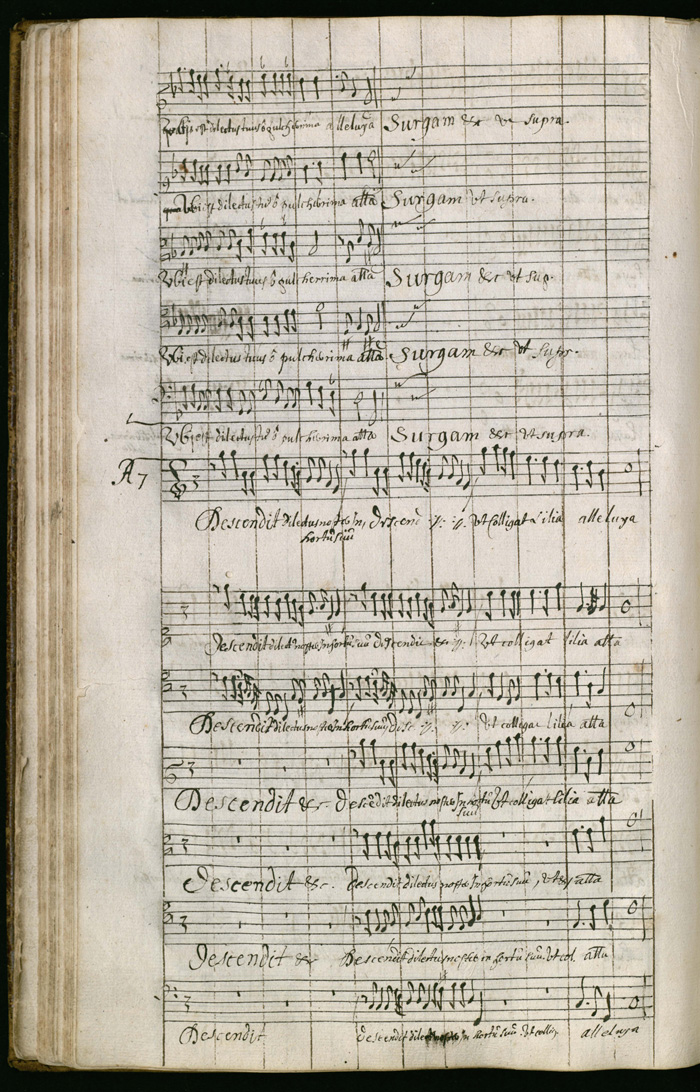 Vbi est dilectus tuus ô pulcherrima alleluya Surgam &c vt supra.
Vbi est dilectus tuus ô pulcherrima atta Surgam vt supra.
Vbi est dilectus tuus ô pulcherrima atta Surgam &c vt sup.
Vbi est dilectus tuus ô pulcherrima atta Surgam &c vt supr.
Vbi est dilectus tuus ô pulcherrima atta Surgam &c vt supra
A 7
Descendit dilectus noster in, descend :/: :/: vt colligat Lilia alleluya
hortũ suũ
Descendit noster in hortũ suũ descendit &c :/: Vt colligat lilia atta
Descendit dilectus noster in hortũ suũ desc :/: :/: vt colligat lilia atta
Descendit &c. descedit dilectus noster in hortũ Vt colligat lilia atta
suũ
Descendit &c. descendit dilectus noster in hortũ suũ, atta
Descendit &c Descendit dilectus noster in hortũ suũ. vt col. atta
Descendit descendit in hortũ suũ. vt collig. alleluya